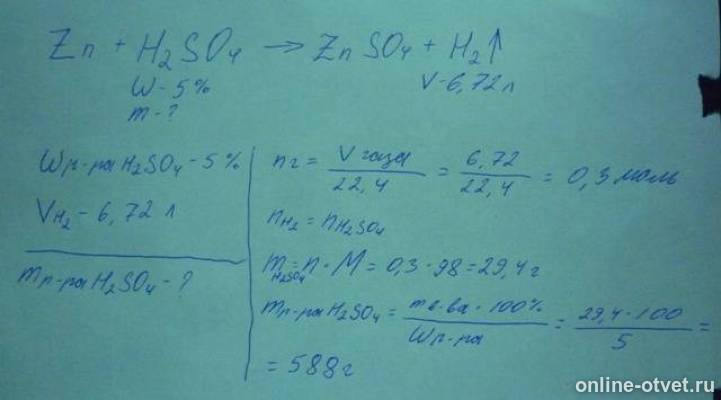 Zn + H₂SO₄ → ZnSO₄ + H₂↑
W - 5%
V - 6,72 л
m - ?
Wр-ра H₂SO₄ - 5%
V H₂ - 6,72 л
mр-ра H₂SO₄ - ?
nг = V газа / 22,4 = 6,72 / 22,4 = 0,3 моль
n H₂ = n H₂SO₄
m H₂SO₄ = n · M = 0,3 · 98 = 29,4 г
mр-ра H₂SO₄ = mв-ва · 100% / Wр-ра = 29,4 · 100 / 5 =
= 588 г
online-otvet.ru